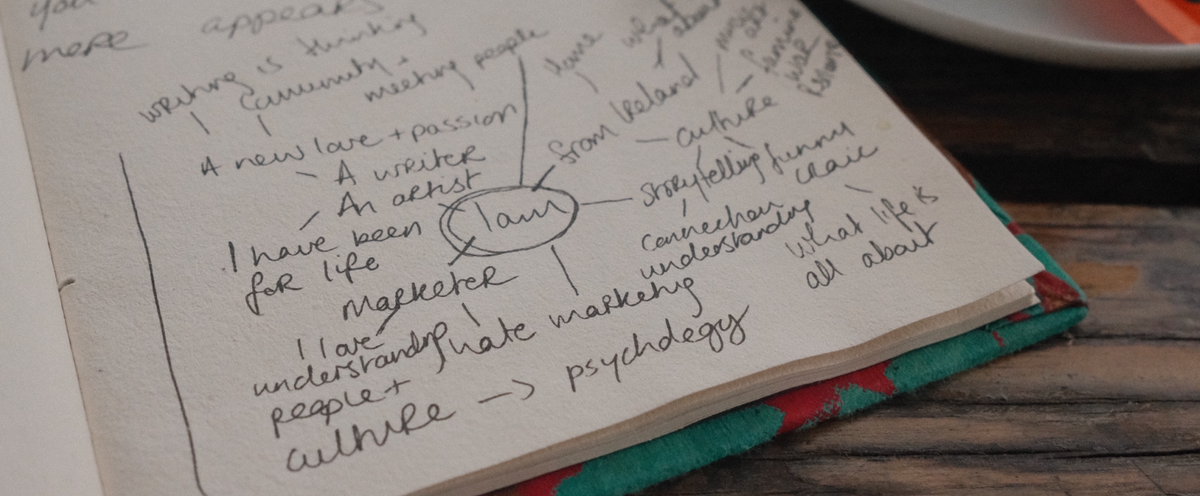 you
more appears
writing is thinking
Community +
meeting people
A new love + passion
A writer
An artist
I have been
for life
I am
Marketer
I love
understanding
people +
culture → psychology
hate marketing
from Ireland
Home
what
about
culture
famine
war
storytelling
funny
craic
connection
understanding
what life is
all about